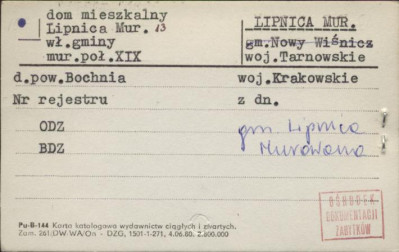 dom mieszkalny
Lipnica Mur. 13
wł.gminy
mur.poł.XIX
LIPNICA MUR.
gm.Nowy Wiśnicz
woj.Tarnowskie
d.pow.Bochnia
woj.Krakowskie
Nr rejestru
z dn.
ODZ
BDZ
gm Lipnica
Murowana
Pu-B-144 Karta katalogowa wydawnictw ciągłych i zwartych.
Zam. 261/DW WA/On - DZG, 1501-1-271, 4.06.80. 2.800.000
OŚRODEK
DOKUMENTACJI
ZABYTKÓW